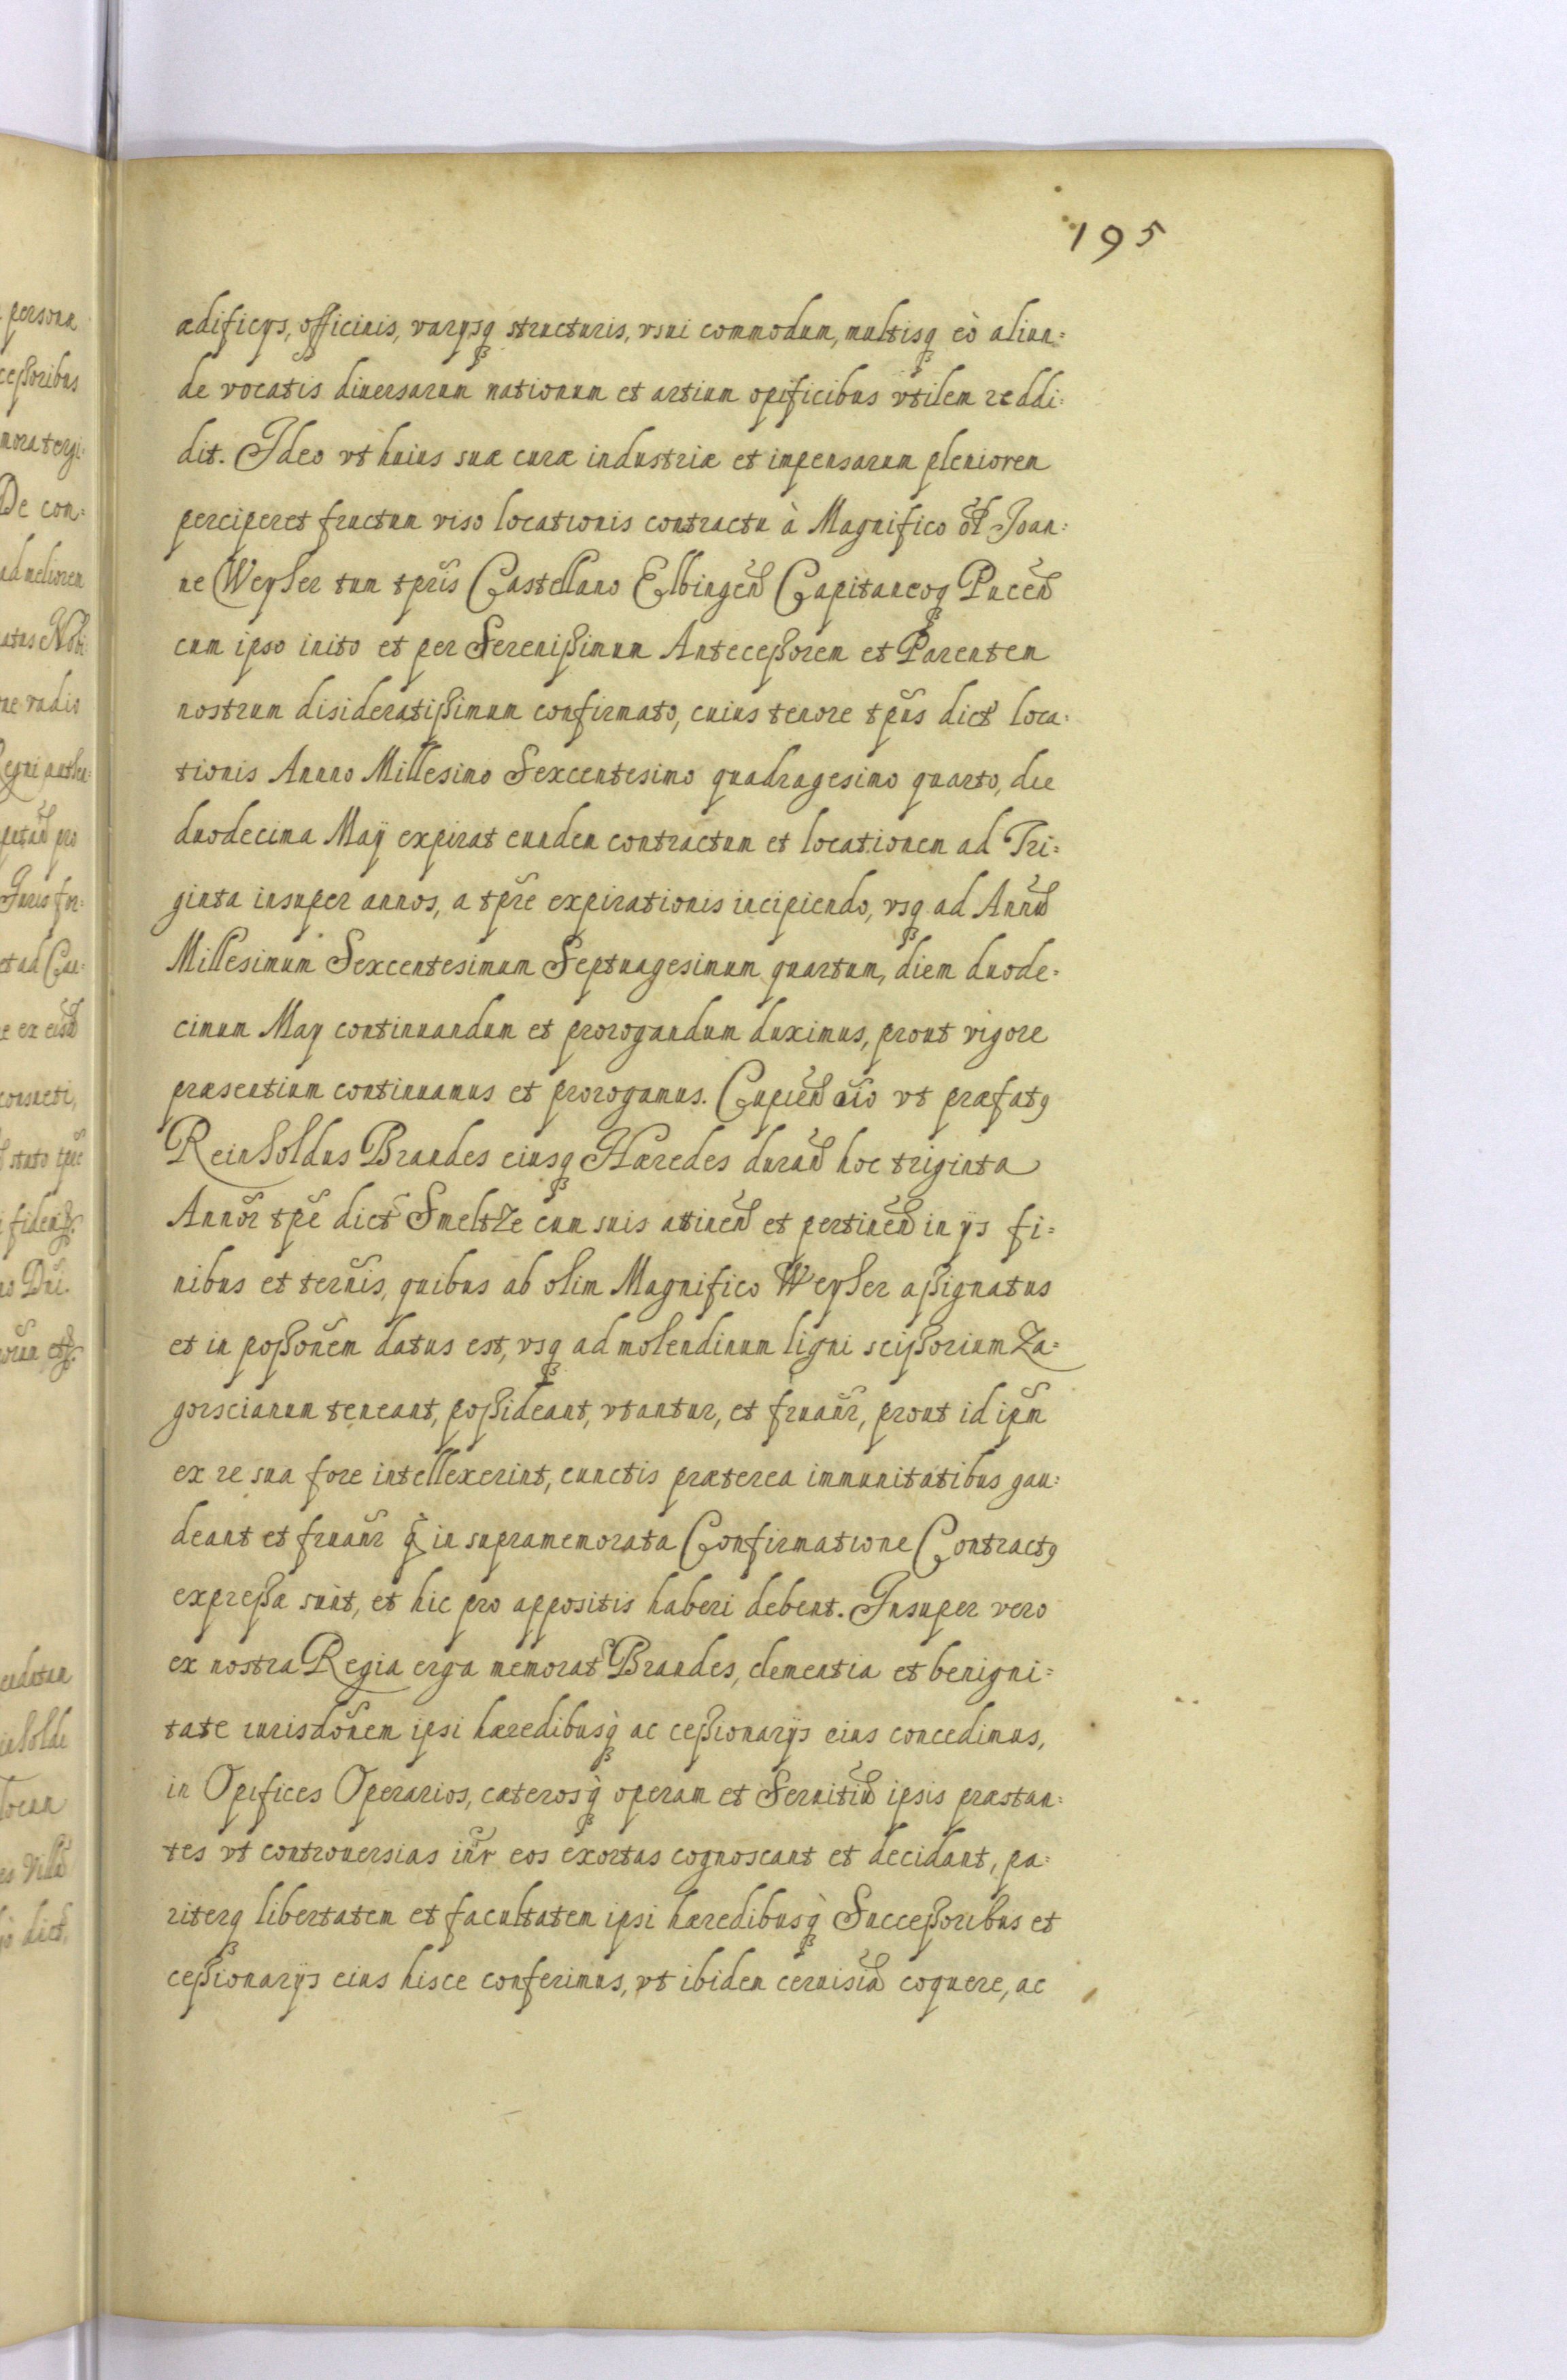 195
ædificys, officinis, varysq structuris, vsui commodum, multisq eò aliun=
de vocatis diuersarum nationum et artium opificibus vtilem reddi=
dit. Ideo vt huius suæ curæ industriæ et impensarum pleniorem
perciperet fructum viso locationis contractu à Magnifico Joan=
ne Weyher tum tpris Castellano Elbingen Capitaneoq Pucen
cum ipso inito et per Serenißimum Anteceßorem et Parentem
nostrum disideratißimum confirmato, cuius tenore tpus dict loca=
tionis Annno Millesimo Sexcentesimo quadragesimo quarto, die
duodecima Maÿ expirat eundem contractum et locationem ad Tri=
ginta insuper annos, a tpre expirationis incipiendo, vsq ad Annu
Millesimum Sexcentesimum Septuagesimum quartum, diem duode=
cimum May continuandum et prorogandum duximus, prout vigore
præsentium continuamus et prorogamus. Cupien vt præfatq
Reinholdus Brandes eiusq Hæredes duran hoc triginta
Annor tpe dict Smeltze cum suis atinen et pertinen in ÿs fi=
nibus et termis, quibus ab olim Magnifico Weyher aßignatus
et in poßonem datus est, vsq ad molendinum ligni scißorium Za=
gorscianum teneant, poßideant, vtantur, et fruanr, prout id ipm
ex re sua fore intellexerint, cunctis præterea immunitatibus gau=
deant et fruanr q in supramemorata Confirmatione Contractq
expreßa sunt, et hic pro appositis haberi debent. Insuper vero
ex nostra Regia erga memorat Brandes, clementia et benigni=
tate iurisdonem ipsi hæredibusq ac ceßionarÿs eius concedimus,
in Opifices Operarios, cæterosq operam et Seruitiu ipsis præstan=
tes vt controuersias intr eos exortas cognoscant et decidant, pa=
riterq libertatem et facultatem ipsi hæredibusq Succeßoribus et
ceßionarÿs eius hisce conferimus, vt ibidem ceruisia coquere, ac